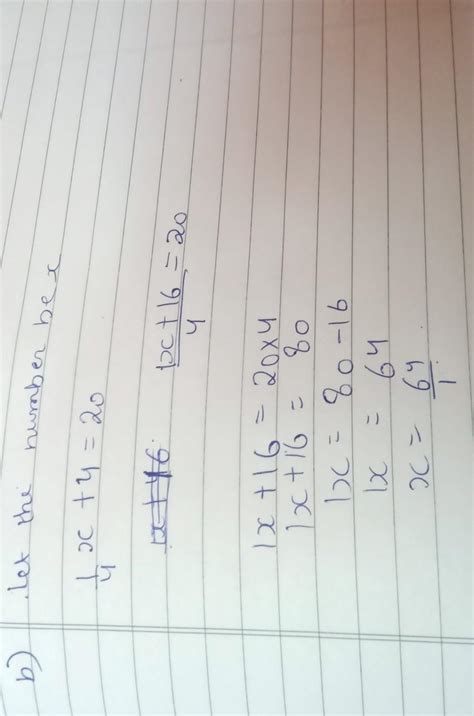 b) let the number be x
1/4 x + 4 = 20
1x+46 (1x + 16)/4 = 20
1x + 16 = 20x4
1x + 16 = 80
1x = 80 - 16
1x = 64
x = 64/1